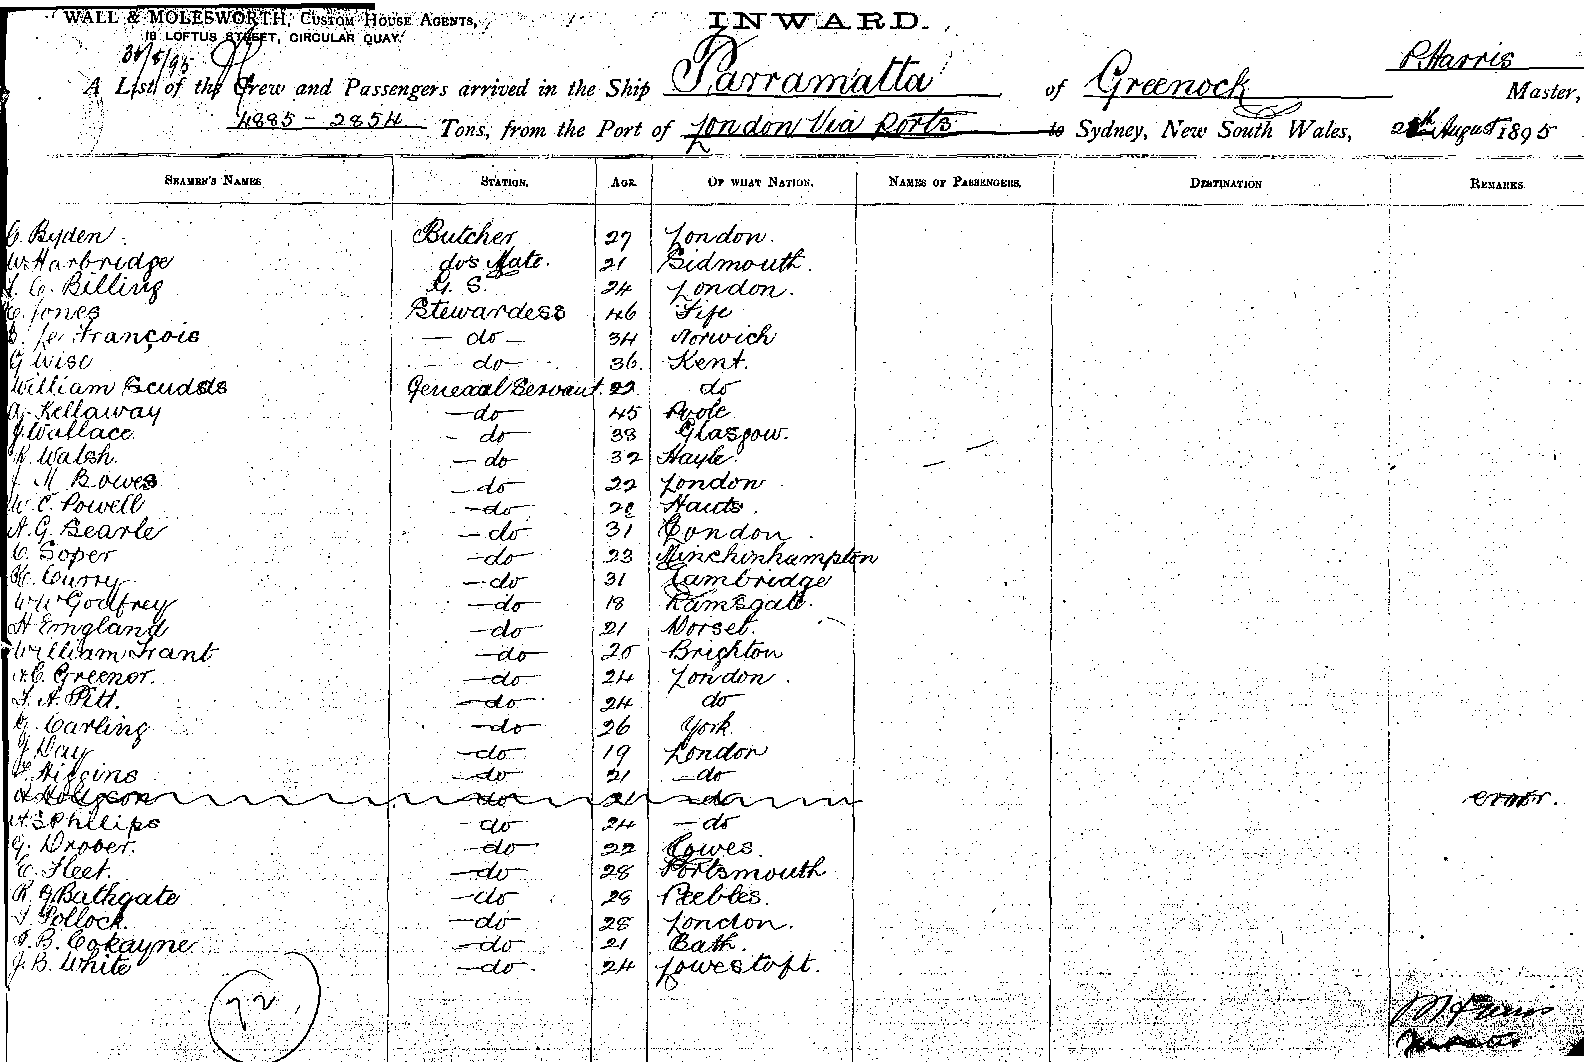 WALL & MOLESWORTH, CUSTOM HOUSE AGENTS,
18 LOFTUS STREET, CIRCULAR QUAY.
INWARD.
P. Harris
A List of the Crew and Passengers arrived in the Ship Parramatta of Greenock Master,
4885 - 2854 Tons, from the Port of London Via Ports to Sydney, New South Wales, August 1895
SEAMEN'S NAMES STATION. AGE. OF WHAT NATION. NAMES OF PASSENGERS. DESTINATION REMARKS
C. Byden Butcher 27 London.
W. Harbridge do's Mate. 21 Sidmouth.
C. Billing G. S. 24 London.
Jones Stewardess 46 Fife
Le François — do — 34 Norwich
G Wise — do — 36. Kent.
William Scudds General Servant. 22 do
A. Kellaway — do — 45 Poole
J. Wallace. — do 38 Glasgow.
R. Walsh. — do 32 Hayle.
J M Bowes — do 22 London
W. C. Powell — do — Hants.
H. G. Searle — do 31 London
C. Soper — do — 23 Minchinhampton
H. Curry — do 31 Cambridge
W W Godfrey — do — 18 Ramsgate.
H Emgland — do 21 Dorset.
William Trant — do 20 Brighton
H. C. Greenor. — do 24 London.
F. A. Pitt. — do 24 do
G. Carling — do — 26 York.
J Day — do — 19 London
Higgins — do 21 — do
do 21 — do error.
H. S Phillips do 24 — do
G. Drover. — do — 22 Cowes.
E. Fleet. — do — 28 Portsmouth
R. G Bathgate — do 28 Peebles.
Pollock. — do — 28 London.
B. Cokayne — do — 21 Bath.
J. B. White — do — 24 Lowestoft.
72